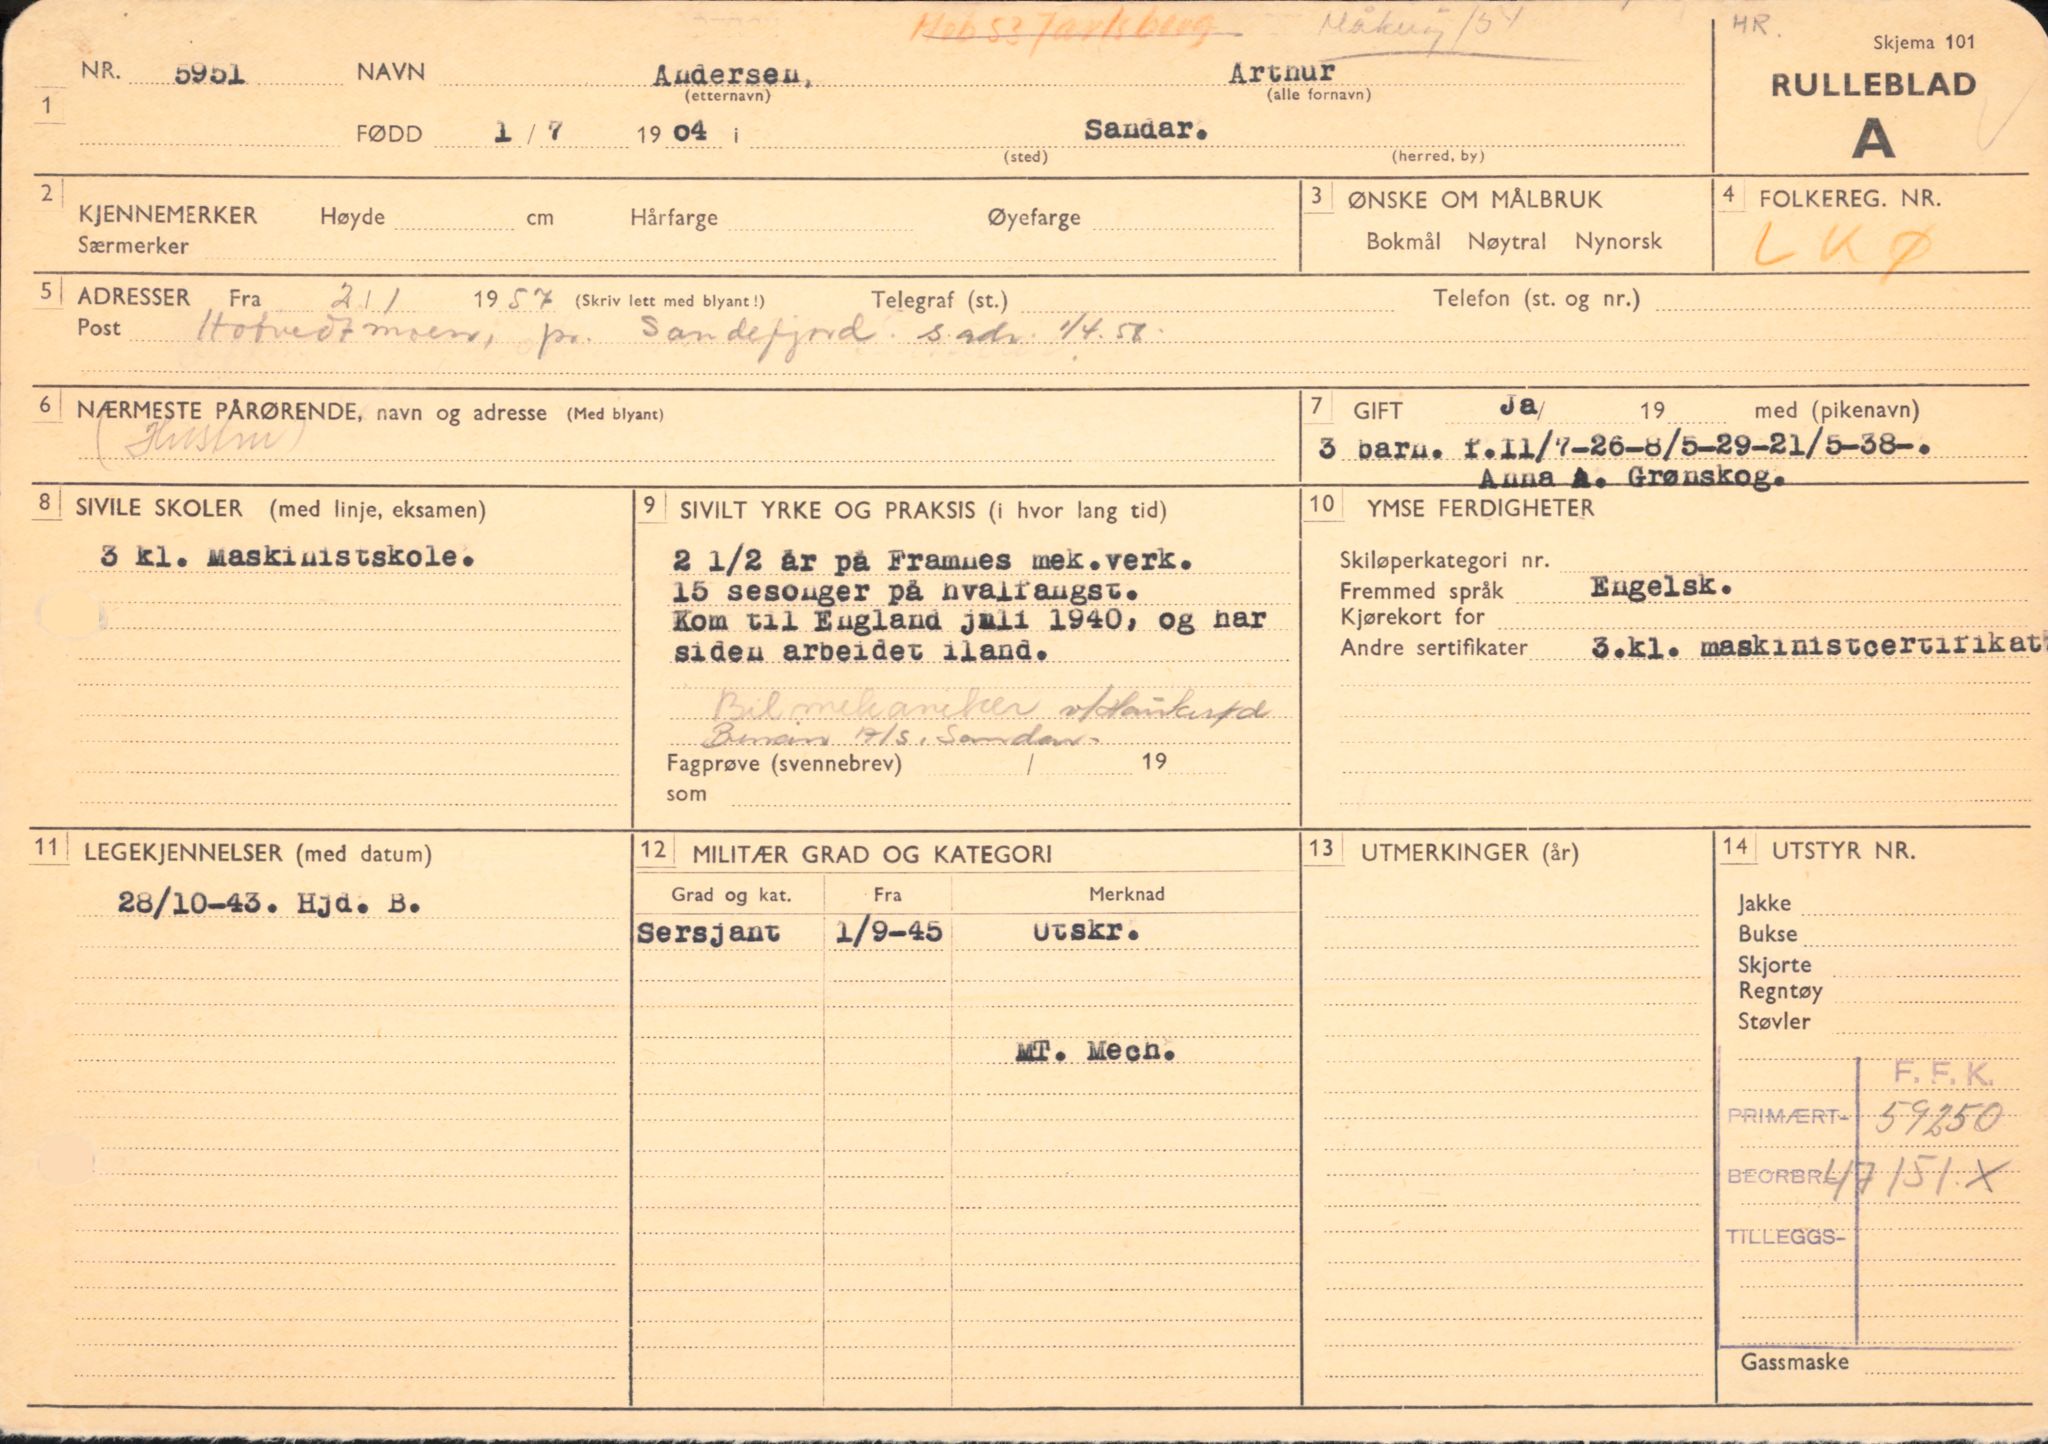 Mob 53 Jarlsberg
HR.
Skjema 101
RULLEBLAD
A
1
NR. 5951 NAVN Andersen, Arthur
(etternavn) (alle fornavn)
FØDD 1 / 7 19 04 i Sandar.
(sted) (herred, by)
2
KJENNEMERKER Høyde cm Hårfarge Øyefarge
Særmerker
3 ØNSKE OM MÅLBRUK
Bokmål Nøytral Nynorsk
4 FOLKEREG. NR.
L K Ø
5 ADRESSER Fra 2/1 1957 (Skriv lett med blyant!) Telegraf (st.) Telefon (st. og nr.)
Post Hotvedtmoen, pr. Sandefjord. s. adr. 1/4.58.
6 NÆRMESTE PÅRØRENDE, navn og adresse (Med blyant)
(Hustru)
7 GIFT Ja / 19 med (pikenavn)
3 barn. f.11/7-26-8/5-29-21/5-38-.
Anna A. Grønskog.
8 SIVILE SKOLER (med linje, eksamen)
3 kl. Maskinistskole.
9 SIVILT YRKE OG PRAKSIS (i hvor lang tid)
2 1/2 år på Framnes mek.verk.
15 sesonger på hvalfangst.
Kom til England juli 1940, og har
siden arbeidet iland.
Bilmekaniker
A/S, Sandar.
Fagprøve (svennebrev) / 19
som
10 YMSE FERDIGHETER
Skiløperkategori nr.
Fremmed språk Engelsk.
Kjørekort for
Andre sertifikater 3.kl. maskinistcertifikat
11 LEGEKJENNELSER (med datum)
28/10-43. Hjd. B.
12 MILITÆR GRAD OG KATEGORI
Grad og kat. Fra Merknad
Sersjant 1/9-45 Utskr.
MT. Mech.
13 UTMERKINGER (år)
14 UTSTYR NR.
Jakke
Bukse
Skjorte
Regntøy
Støvler
F. F. K.
PRIMÆRT- 59250
BEORBR. 47151.X
TILLEGGS-
Gassmaske